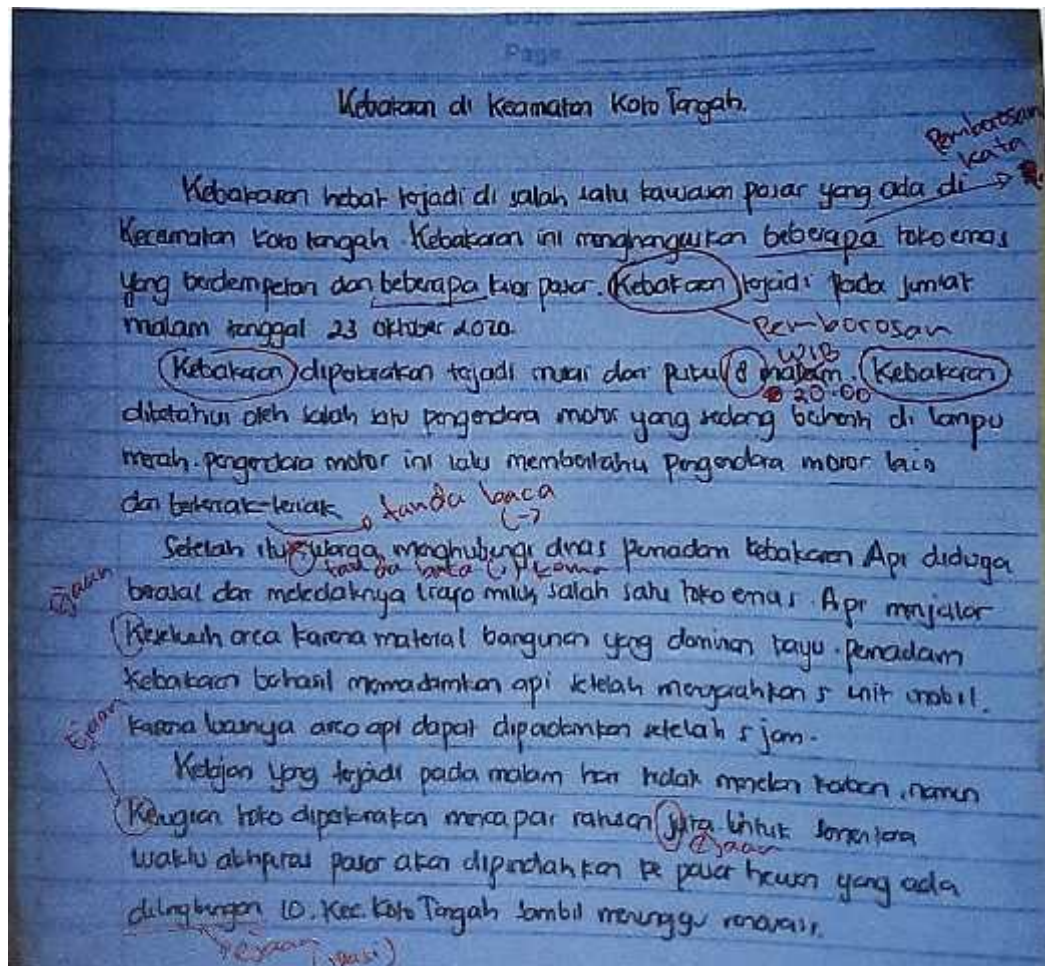 Page
Kebakaran di Kecamatan Koto Tangah.
Pemborosan
kata
Kebakaran hebat terjadi di salah satu kawasan pasar yang ada di
Kecamatan Koto tangah. Kebakaran ini menghanguskan beberapa toko emas
yang berdempetan dan beberapa kios pasar. Kebakaran terjadi pada jumlat
malam tanggal 23 oktober 2020.
Pemborosan
WIB
Kebakaran diperkirakan terjadi mulai dari pukul 8 malam. Kebakaran
20.00
diketahui oleh salah satu pengendara motor yang sedang berhenti di lampu
merah. pengendara motor ini lalu memberitahu pengendara motor lain
dan berteriak-teriak
tanda baca
(-)
Setelah itu warga menghubungi dinas pemadam kebakaran Api diduga
tanda baca (,) koma
Ejaan
berasal dari meledaknya trafo milik salah satu toko emas. Api menjalar
Keseluruh area karena material bangunan yang dominan kayu. pemadam
Kebakaran berhasil memadamkan api setelah mengerahkan 5 unit mobil.
Ejaan
Karena luasnya area api dapat dipadamkan setelah 5 jam.
Kejadian yang terjadi pada malam hari tidak menelan korban, namun
Kerugian toko diperkirakan mencapai ratusan juta. Untuk sementara
Ejaan
waktu aktifitas pasar akan dipindahkan ke pasar hewan yang ada
dilingkungan 10. Kec. Koto Tangah sambil menunggu renovasi.
Ejaan